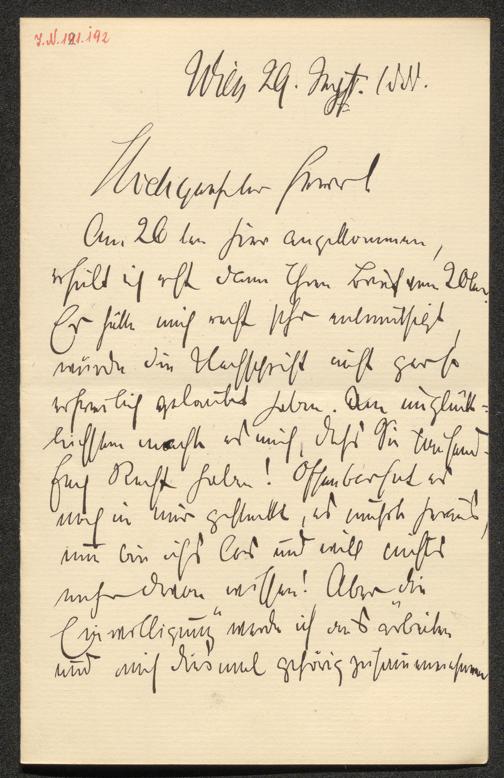 I.N. 121.192
Wien 29. Sept. 188.
Hochgeehrter Herr!
Am 26ten hier angekommen,
erhielt ich erst dann Ihren Brief vom 20ten.
Er hätte mich recht sehr entmuthigt,
würde die Nachschrift nicht gar so
erfreulich gelautet haben. Am unglück-
lichsten machte es mich, daß Sie
Recht haben! Offenbar hat es
noch in mir gesteckt, es mußte heraus,
nun bin ichs los und will nichts
mehr davon wissen! Aber die
Einwilligung" werde ich ausarbeiten
und mich diesmal gehörig zusammennehmen